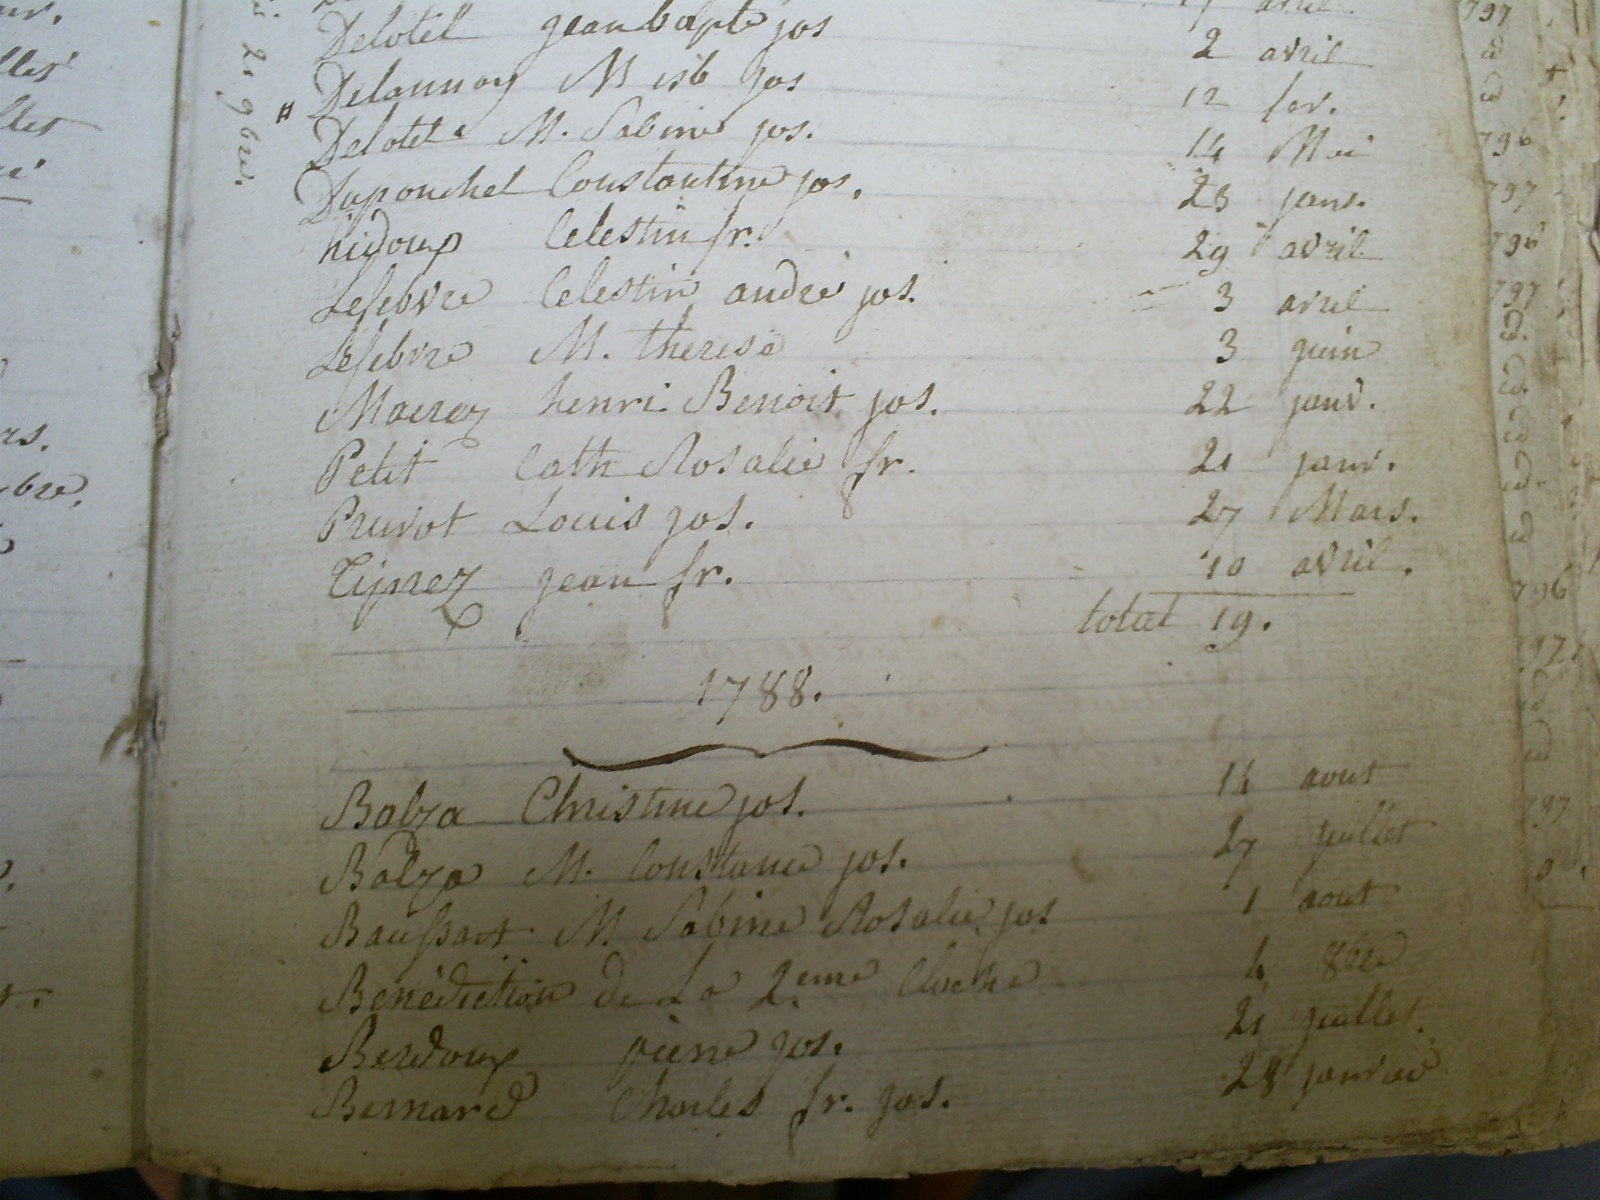 Delotel jean bapte jos 2 avril
Delannoy M isb jos 12 fev.
Delotel M. Sabine jos. 14 Mai
Duponchel Constantine jos. 23 janv.
hidoux Celestin fr. 29 avril
Lefebvre Celestin andré jos. 3 avril
Lefebvre M. therese 3 juin
Macrez henri Benoit jos. 22 janv.
Petit Cath Rosalie fr. 21 janv.
Pruvot Louis jos. 27 Mars.
jean fr. 10 avril.
total 19.
1788.
Balza Christine jos. 14 aout
Balza M. Constance jos. 27 juillet
Baussart M Sabine Rosalie jos 1 aout
Benédiction de La 2.eme Cloche 4 8bre
Berdoux pierre jos. 21 juillet.
Bernard Charles fr. jos. 28 janvier